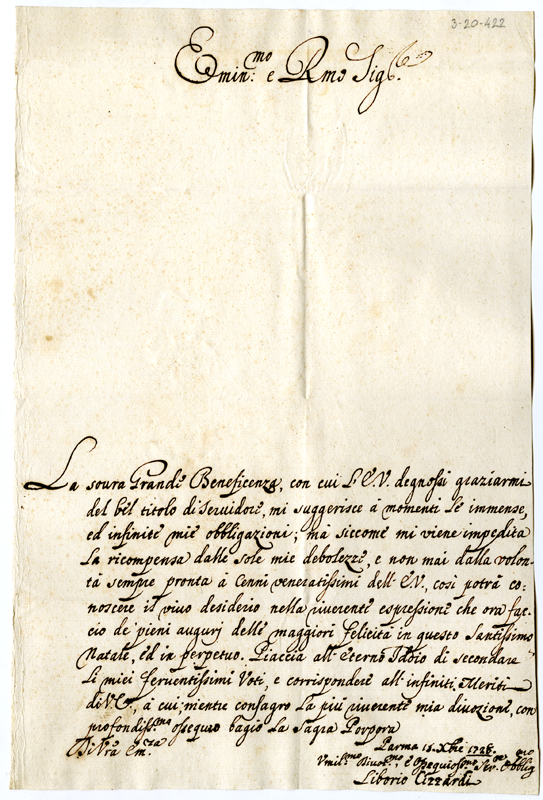 3-20-422
Emin.mo e Rmo Sig.r
La soura Grande Beneficenza, con cui l'E.V. degnossi graziarmi
del bel titolo di Seruidore, mi suggerisce à momenti le immense,
ed infinite mie obbligazioni; mà siccome mi viene impedita
la ricompensa dalle sole mie debolezze, e non mai dalla volon-
tà sempre pronta à Cenni veneratissimi dell'E.V., così potrà co-
noscere il viuo desiderio nella riuerente espressione che ora fac-
cio de' pieni augurj delle maggiori felicità in questo Santissimo
Natale, ed in perpetuo. Piaccia all'eterno Idoio di secondare
li miei feruentissimi Voti, e corrispondere all'infiniti Meriti
di V.E., à cui mentre consagro la più riuerente mia diuozione, con
profondiss.mo ossequio bagio la Sagra Porpora
Di Vrâ Em.za
Parma 15. Xbre 1728.
Vmil.mo Diuot.mo, e Ossequioss.mo Ser.e Obblig.mo
Liborio Cizzardi